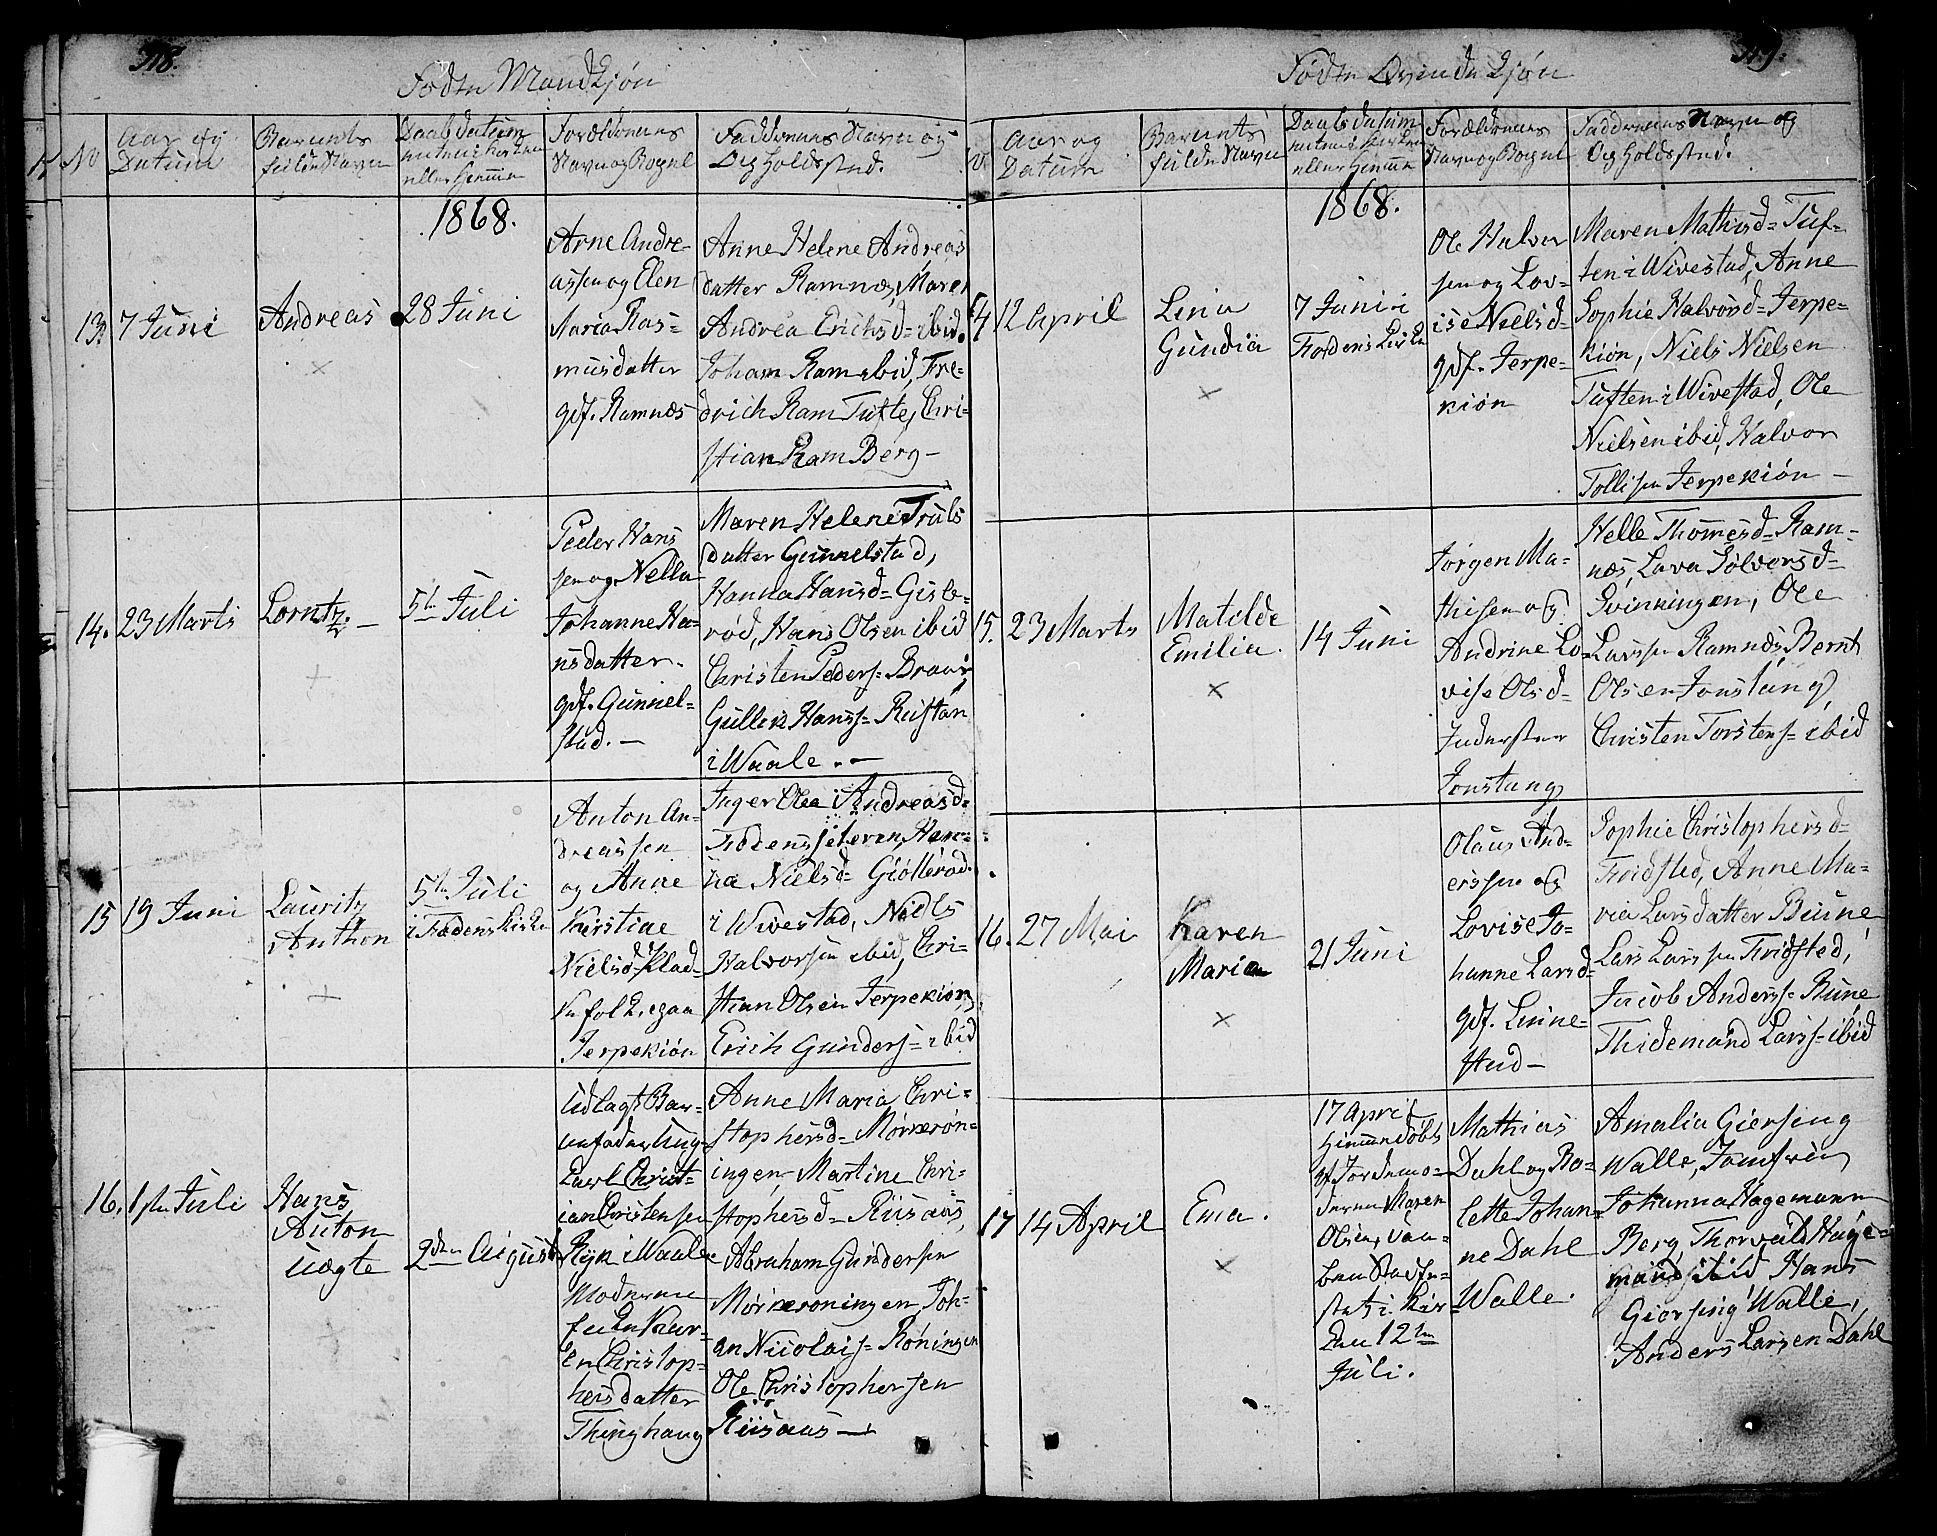 318.
Fødte Mandkjøn
No
Aar og
Datum
Barnets
fulde Navn
Daabsdatum
enten i Kirken
eller Hiemme
Forældrenes
Navn og Bopæl
Faddernes Navn og
Opholdssted.
1868.
13.
7 Juni
Andreas
28 Juni
Arne Andre-
assen og Elen
Maria Ras-
musdatter
gdf. Ramnæs
Anne Helene Andreas
datter Ramnæs, Maren
Andrea Erichsd= ibid.
Joham Ram ibid, Fre-
drich Ram Tufte, Chri-
stian Ram Berg-
14.
23 Marts
Lorntz.-
5te Juli
Peder Hans
sen og Nella
Johanne Ha-
nsdatter.
gdf. Gunnel-
stud.-
Maren Helene Truls
datter Gunnelstad,
Hanna Hansd= Gisle-
rød, Hans Olsen ibid
Christen Peders= Braar
Gullik Hanss= Rustan
i Waale.-
15
19 Juni
Lauritz
Anthon
5te Juli
i Fodens Kirke
Anton An-
dreassen
og Anne
Kirstine
Nielsd= Plad-
sefolk paa
Jerpekiøn
Inger Olea Andreasd=
Fodenssæteren, Han-
na Nielsd= Giøllerød
i Wivestad, Niels
Halvorsen ibid, Chri-
stian Olsen Jerpekiøn,
Erich Gunders= ibid
16.
1ste Juli
Hans
Anton
uægte
2den August
Udlagt Bar-
nefader Ung-
Carl Christ-
ian Christensen
Ryk i Waale
Moderen
Kar-
en Christop-
hersdatter
Thinghaug
Anne Maria Chri-
stophersd= Mørkrøn-
ingen, Martine Chri-
stophersd= Riisaas,
Abraham Gundersen
Mørkerøningen, Joh-
an Nicolais= Røningen
Ole Christophersen
Riisaas-
319.
Fødte Qvindekjøn
Aar og
Datum
Barnets
fulde Navn
Daabsdatum
enten i Kirken
eller Hiemme
Forældrenes
Navn og Bopæl
Faddernes Navn og
Opholdssted.
1868.
14
12 April
Lina
Gundia
7 Juni i
Fodens Kirke
Ole Halvor
sen og Lov-
ise Nielsd=
gdf. Jerpe-
kiøn
Maren Mathisd= Tuf-
ten i Wivestad, Anne
Sophie Halvorsd= Jerpe-
kiøn, Niels Nielsen
Tuften i Wivestad, Ole
Nielsen ibid, Halvor
Tollissen Jerpekiøn-
15.
23 Marts
Matilde
Emilia.
14 Juni
Jørgen Ma-
thisen og
Andrine Lo-
vise Olsd=
Inderster
Jonstang
Helle Thomesd= Ram-
næs, Lava Sølversd=
Svinningen, Ole
Larssen Ramnæs, Bernt
Olsen Jonstang,
Christen Torstens= ibid
16.
27 Mai
Karen
Maria
21 Juni
Olaus And-
erssen og
Lovise Jo-
hanne Larsd=
gdf. Linne-
stud-
Sophie Christophersd=
Fridsted, Anne Ma-
ria Larsdatter Bune,
Lars Larssen Fridsted,
Jacob Anderss= Bune
Thidemand Larss= ibid
17
14 April
Ema.
17 April
Hiemmedøbt
af Jordemo-
deren Maren
Olsen, Daa-
ben Stadfæ-
stet i Kir-
den 12te
Juli.
Mathias
Dahl og Bo-
lette Johan-
ne Dahl
Walle.
Amalia Giersing
Walle, Jomfru
Johanna Hagemann
Berg, Thorvald Hage-
mand ibid Hans
Giersing Walle,
Anders Larsen Dahl